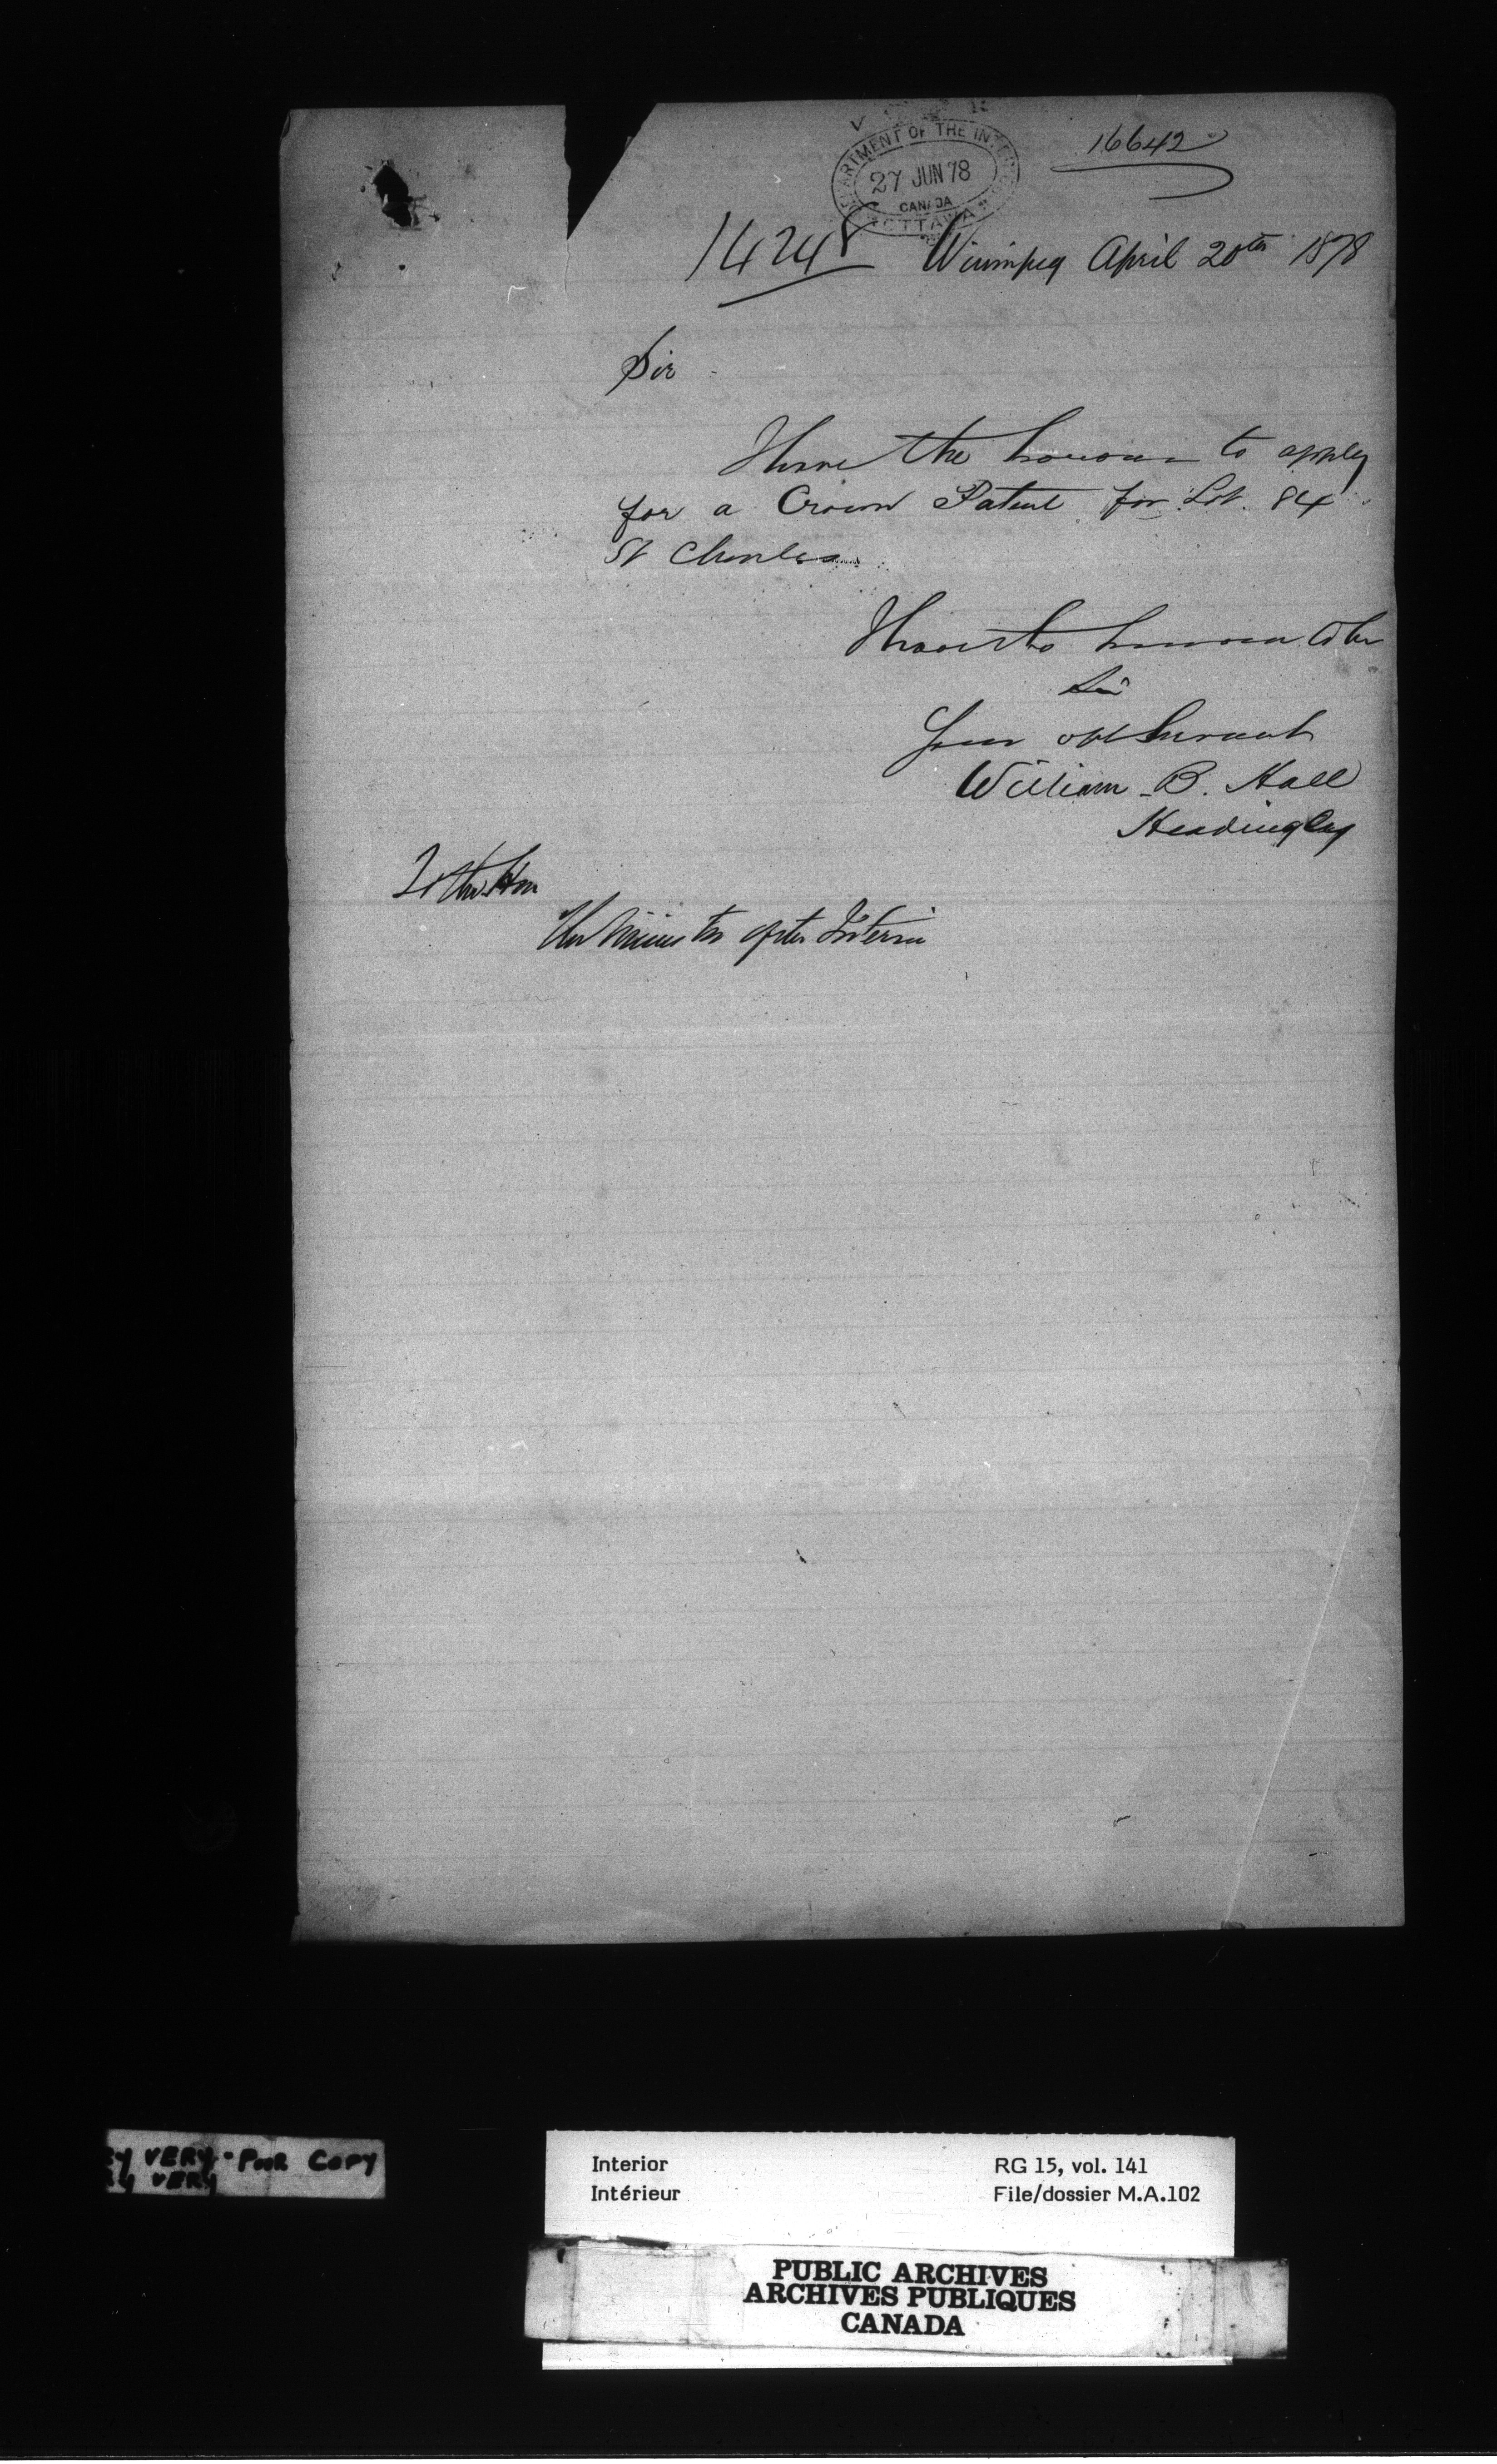 16642
DEPARTMENT OF THE INTERIOR
27 JUN 78
CANADA
OTTAWA
14248 Winnipeg April 20th 1878
Sir
I have the honour to apply
for a Crown Patent for Lot 84
St Charles
I have the honour to be
Sir
Your obt Servant
William B. Hall
Headingley
To the Hon
The Minister of the Interior
VERY - POOR COPY
VERY
Interior
Intérieur
RG 15, vol. 141
File/dossier M.A.102
PUBLIC ARCHIVES
ARCHIVES PUBLIQUES
CANADA